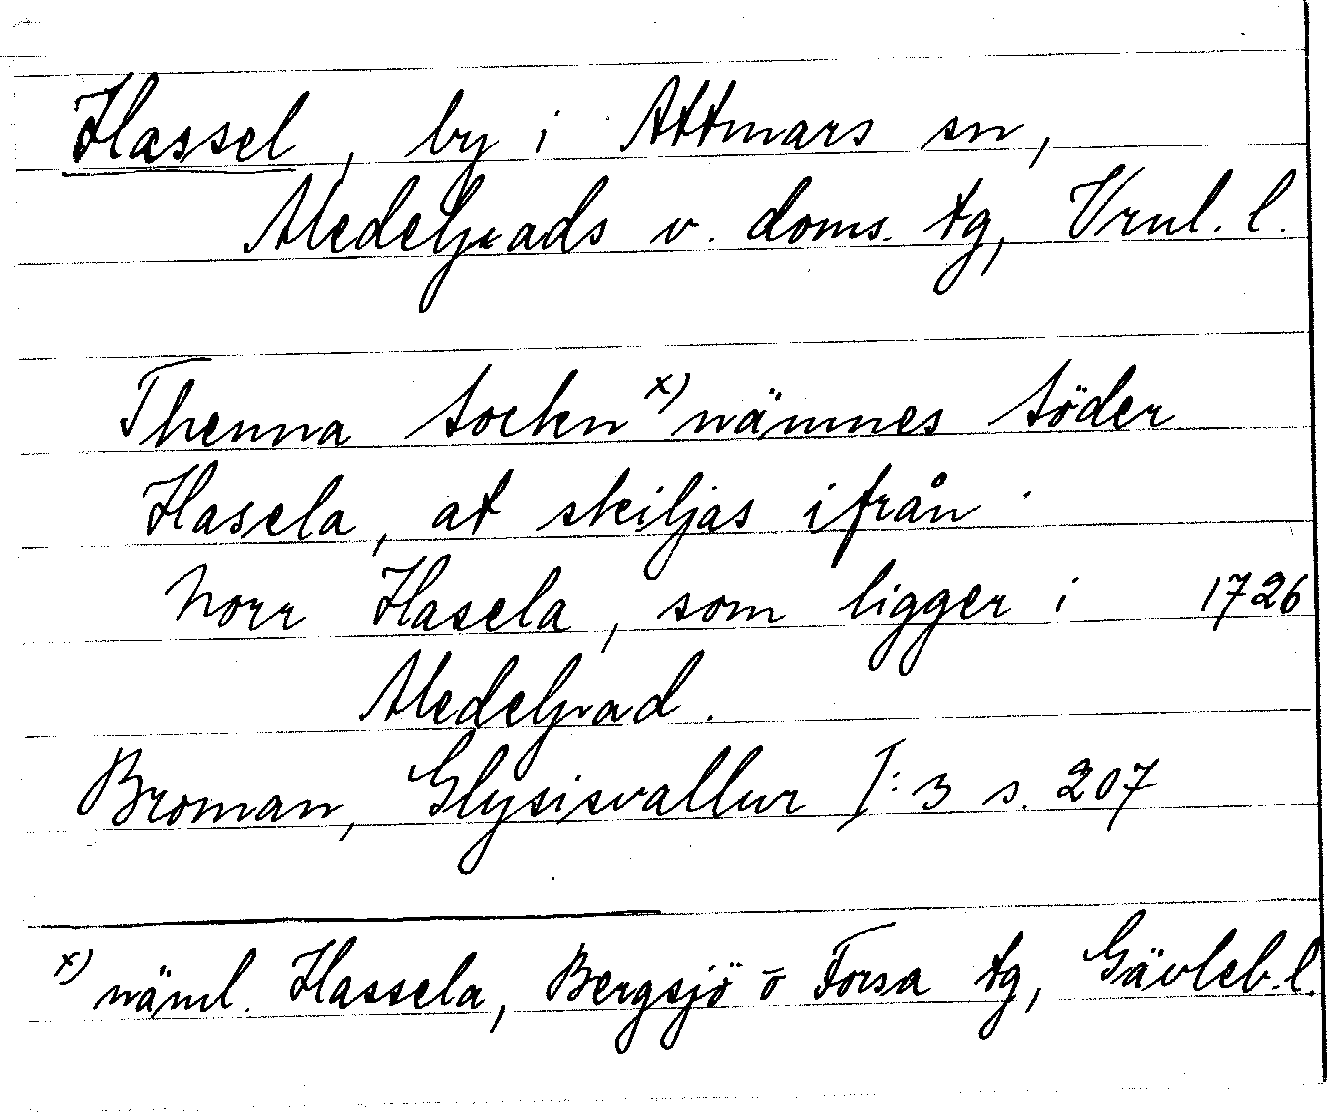 Hassel, by i Attmars sn,
Medelpads v. doms. tg, Vrnl. l.
Thenna Sockn x) nämnes Söder
Hasela, at skiljas ifrån
Norr Hasela, som ligger i 1726
Medelpad.
Broman, Glysisvallur I:3 s. 207
x) näml. Hassela, Bergsjö o Forsa tg, Gävleb. l.